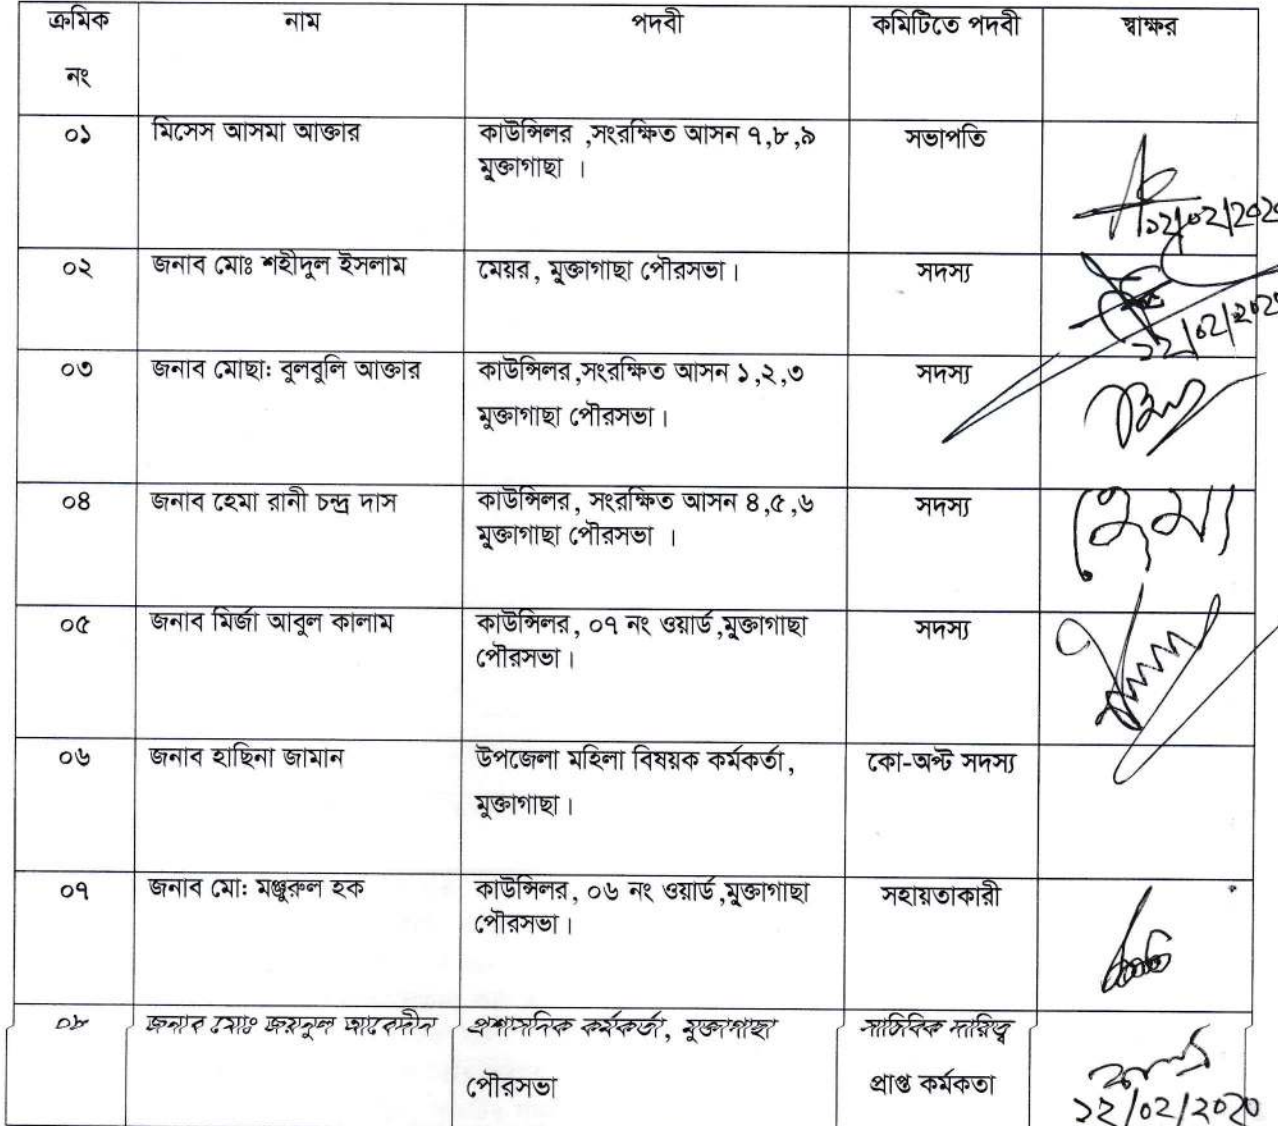 ক্রমিক নাম পদবী কমিটিতে পদবী স্বাক্ষর
নং
০১ মিসেস আসমা আক্তার কাউন্সিলর ,সংরক্ষিত আসন ৭,৮,৯ সভাপতি
মুক্তাগাছা ।
১২/০২/২০২০
০২ জনাব মোঃ শহীদুল ইসলাম মেয়র, মুক্তাগাছা পৌরসভা। সদস্য
১২/০২/২০২০
০৩ জনাব মোছা: বুলবুলি আক্তার কাউন্সিলর,সংরক্ষিত আসন ১,২,৩ সদস্য
মুক্তাগাছা পৌরসভা।
০৪ জনাব হেমা রানী চন্দ্র দাস কাউন্সিলর, সংরক্ষিত আসন ৪,৫,৬ সদস্য হেমা
মুক্তাগাছা পৌরসভা ।
০৫ জনাব মির্জা আবুল কালাম কাউন্সিলর, ০৭ নং ওয়ার্ড,মুক্তাগাছা সদস্য
পৌরসভা।
০৬ জনাব হাছিনা জামান উপজেলা মহিলা বিষয়ক কর্মকর্তা, কো-অপ্ট সদস্য
মুক্তাগাছা।
০৭ জনাব মো: মঞ্জুরুল হক কাউন্সিলর, ০৬ নং ওয়ার্ড,মুক্তাগাছা সহায়তাকারী
পৌরসভা।
০৮ জনাব মোঃ জয়নুল আবেদীন প্রশাসনিক কর্মকর্তা, মুক্তাগাছা সাচিবিক দায়িত্ব
পৌরসভা প্রাপ্ত কর্মকতা
১২/০২/২০২০